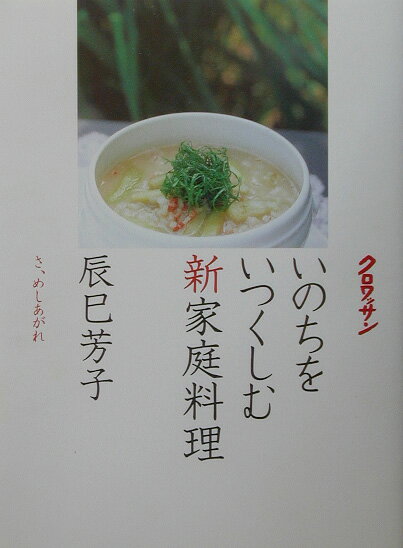 クロワッサン
いのちを
いつくしむ
新家庭料理
辰巳芳子
さ、めしあがれ